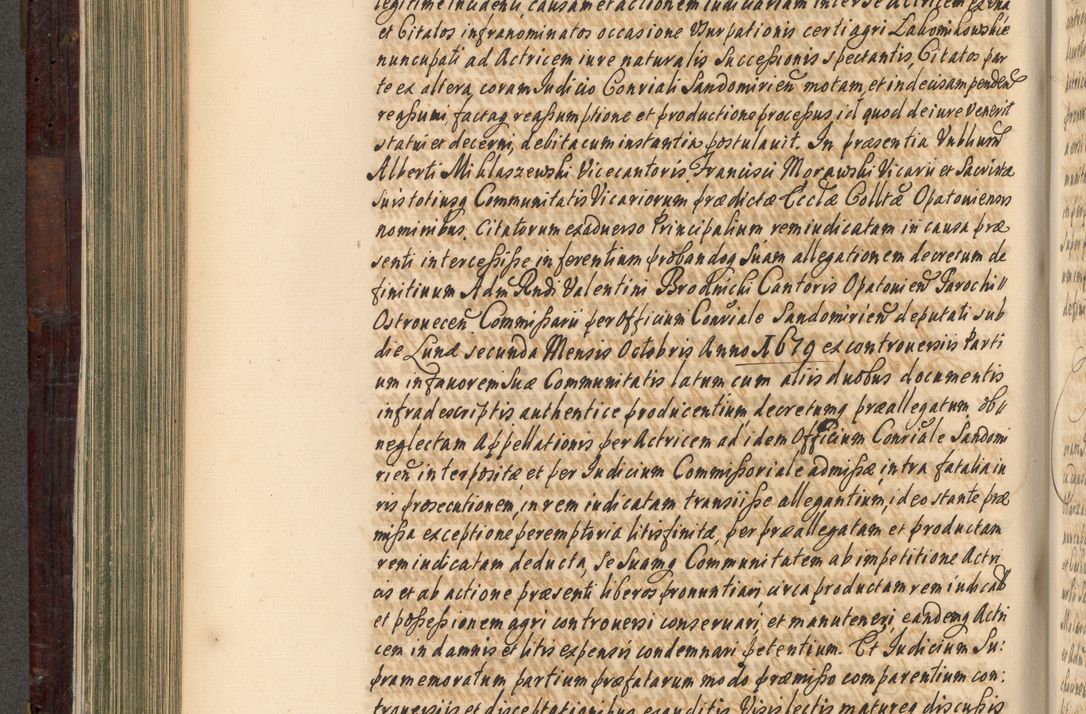 legitime incidenti, causam et actionem iudiciariam inter se Actricem ex una
et Citatos infranominatos occasione Vsurpationis certi agri Lahomikowskie
nuncupati ad Actricem iure naturalis Successionis spectantis, Citatos par
te ex altera, coram Judicio Consiali Sandomirien motam, et indecisam penden
reassumi, factaq reassumptione et productione processus id quod de iure venerit
statui et decerni, debita cum instantia postulauit. In præsentia Vnblium
Alberti Miklaszewski Vicecantoris, Francisci Morawski Vicarii et Sacristæ
suis totiusq Communitatis Vicariorum prædictæ Ecclæ Colltæ Opatouiensis
nominibus, Citatorum ex aduerso Principalium rem iudicatam in causa præ
senti intercessisse inferentium probandoq suam allegationem decretum de
finitiuum Adm Rndi Valentini Brodnicki Cantoris Opatouien Parochi
Ostrouecen Commissarii per Officium Consiale Sandomirien deputati sub
die Lunæ secunda Mensis Octobris Anno 1679 ex controuersiis Parti
um in fauorem suæ Communitatis latum cum aliis duobus documentis
infradescriptis authentice producentium decretumq præallegatum ob
neglectam Appellationis per Actricem ad idem Officium Consiale Sandomi
rien interpositæ et per Judicium Commissoriale admissæ intra fatalia iu
ris prosecutionem, in rem iudicatam transiisse allegantium, ideo stante præ
missa exceptione peremptoria litisfinitæ, per præallegatam et productam
rem iudicatam deducta, se suamq Communitatem ab impetitione Actri
cis et ab actione præsenti liberos pronuntiari circa productam rem iudicat
et possessionem agri controuersi conseruari, et manuteneri, eandemq Actri
cem in damnis et litis expensis condemnari petentium. Et Judicium Su:
pramemoratum partium præfatarum modo præmisso comparentium con:
trouersiis et disceptationibus exauditis, Visis lectis matureq discussis